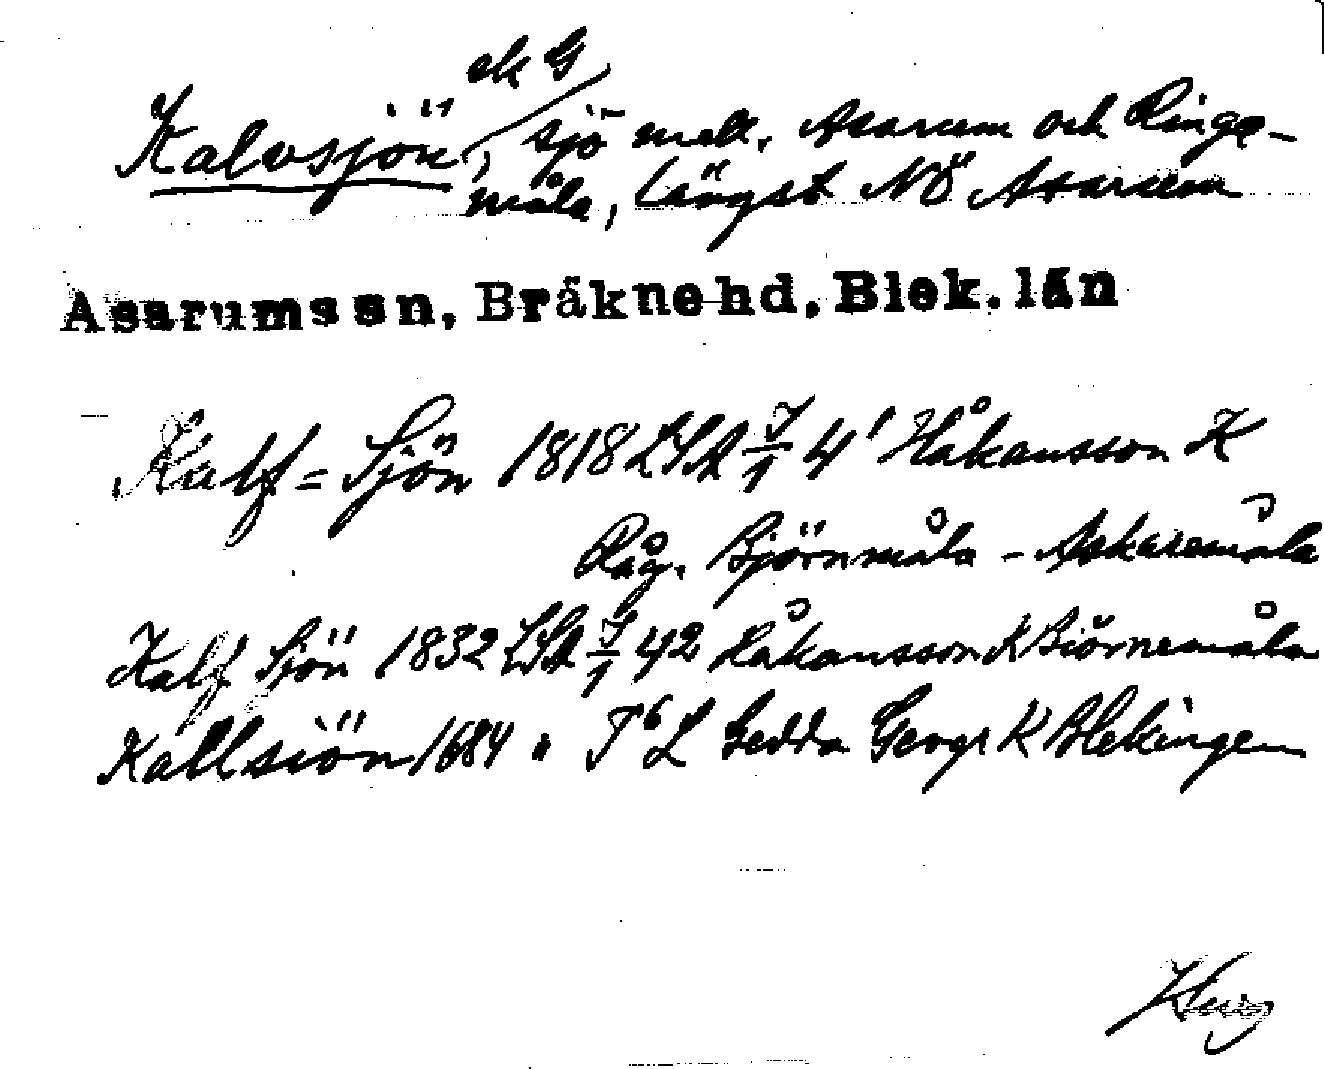 ek G
Kalvsjön, sjö mell. Asarum och Ringa-
måla, längst NÖ Asarum
Asarums sn, Bräkne hd, Blek. län
Kalf=Sjön 1818 LSA J/1 4¹ Håkansson K
Råg. Björnmåla - Askaremåla
Kalf Sjön 1832 LSA J/1 42 Håkansson K Biörnemåla
Kallsiön 1684 " T⁶ L Gedda Geogr K Blekingen